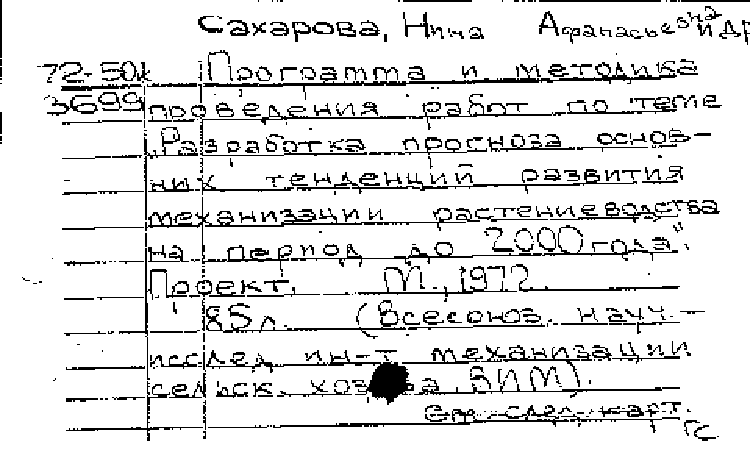 Сахарова, Нина Афанасьевна и др
72-50к Программа и методика
3699 проведения работ по теме
„Разработка прогноза основ-
них тенденций развития
механизации растениеводства
на период до 2000 года".
Проект. М., 1972.
85л. (Всесоюз. науч.-
исслед. ин-т механизации
сельск. хоз-ва. ВИМ).
См. след. карт.
ГС